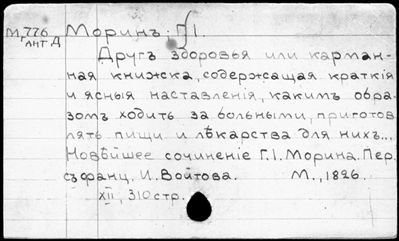 М,776 Моринъ. Г.І.
АНТ Д
Другъ здоровья или карман-
ная книжка, содержащая краткія
и ясныя наставленія, какимъ обра-
зомъ ходить за больными, приготов
лять пищи и лѣкарства для нихъ...
Новѣйшее сочиненіе Г.І. Морина. Пер.
съ франц. И. Войтова. М., 1826.
XII, 310 стр.